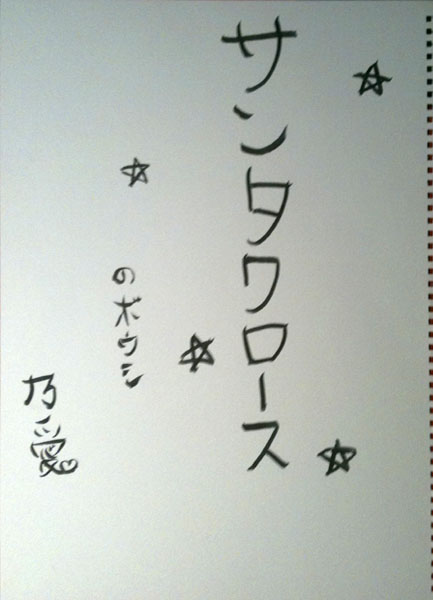 サンタクロース
のボウシ
乃愛